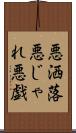 悪洒落
悪じゃ
れ悪戯